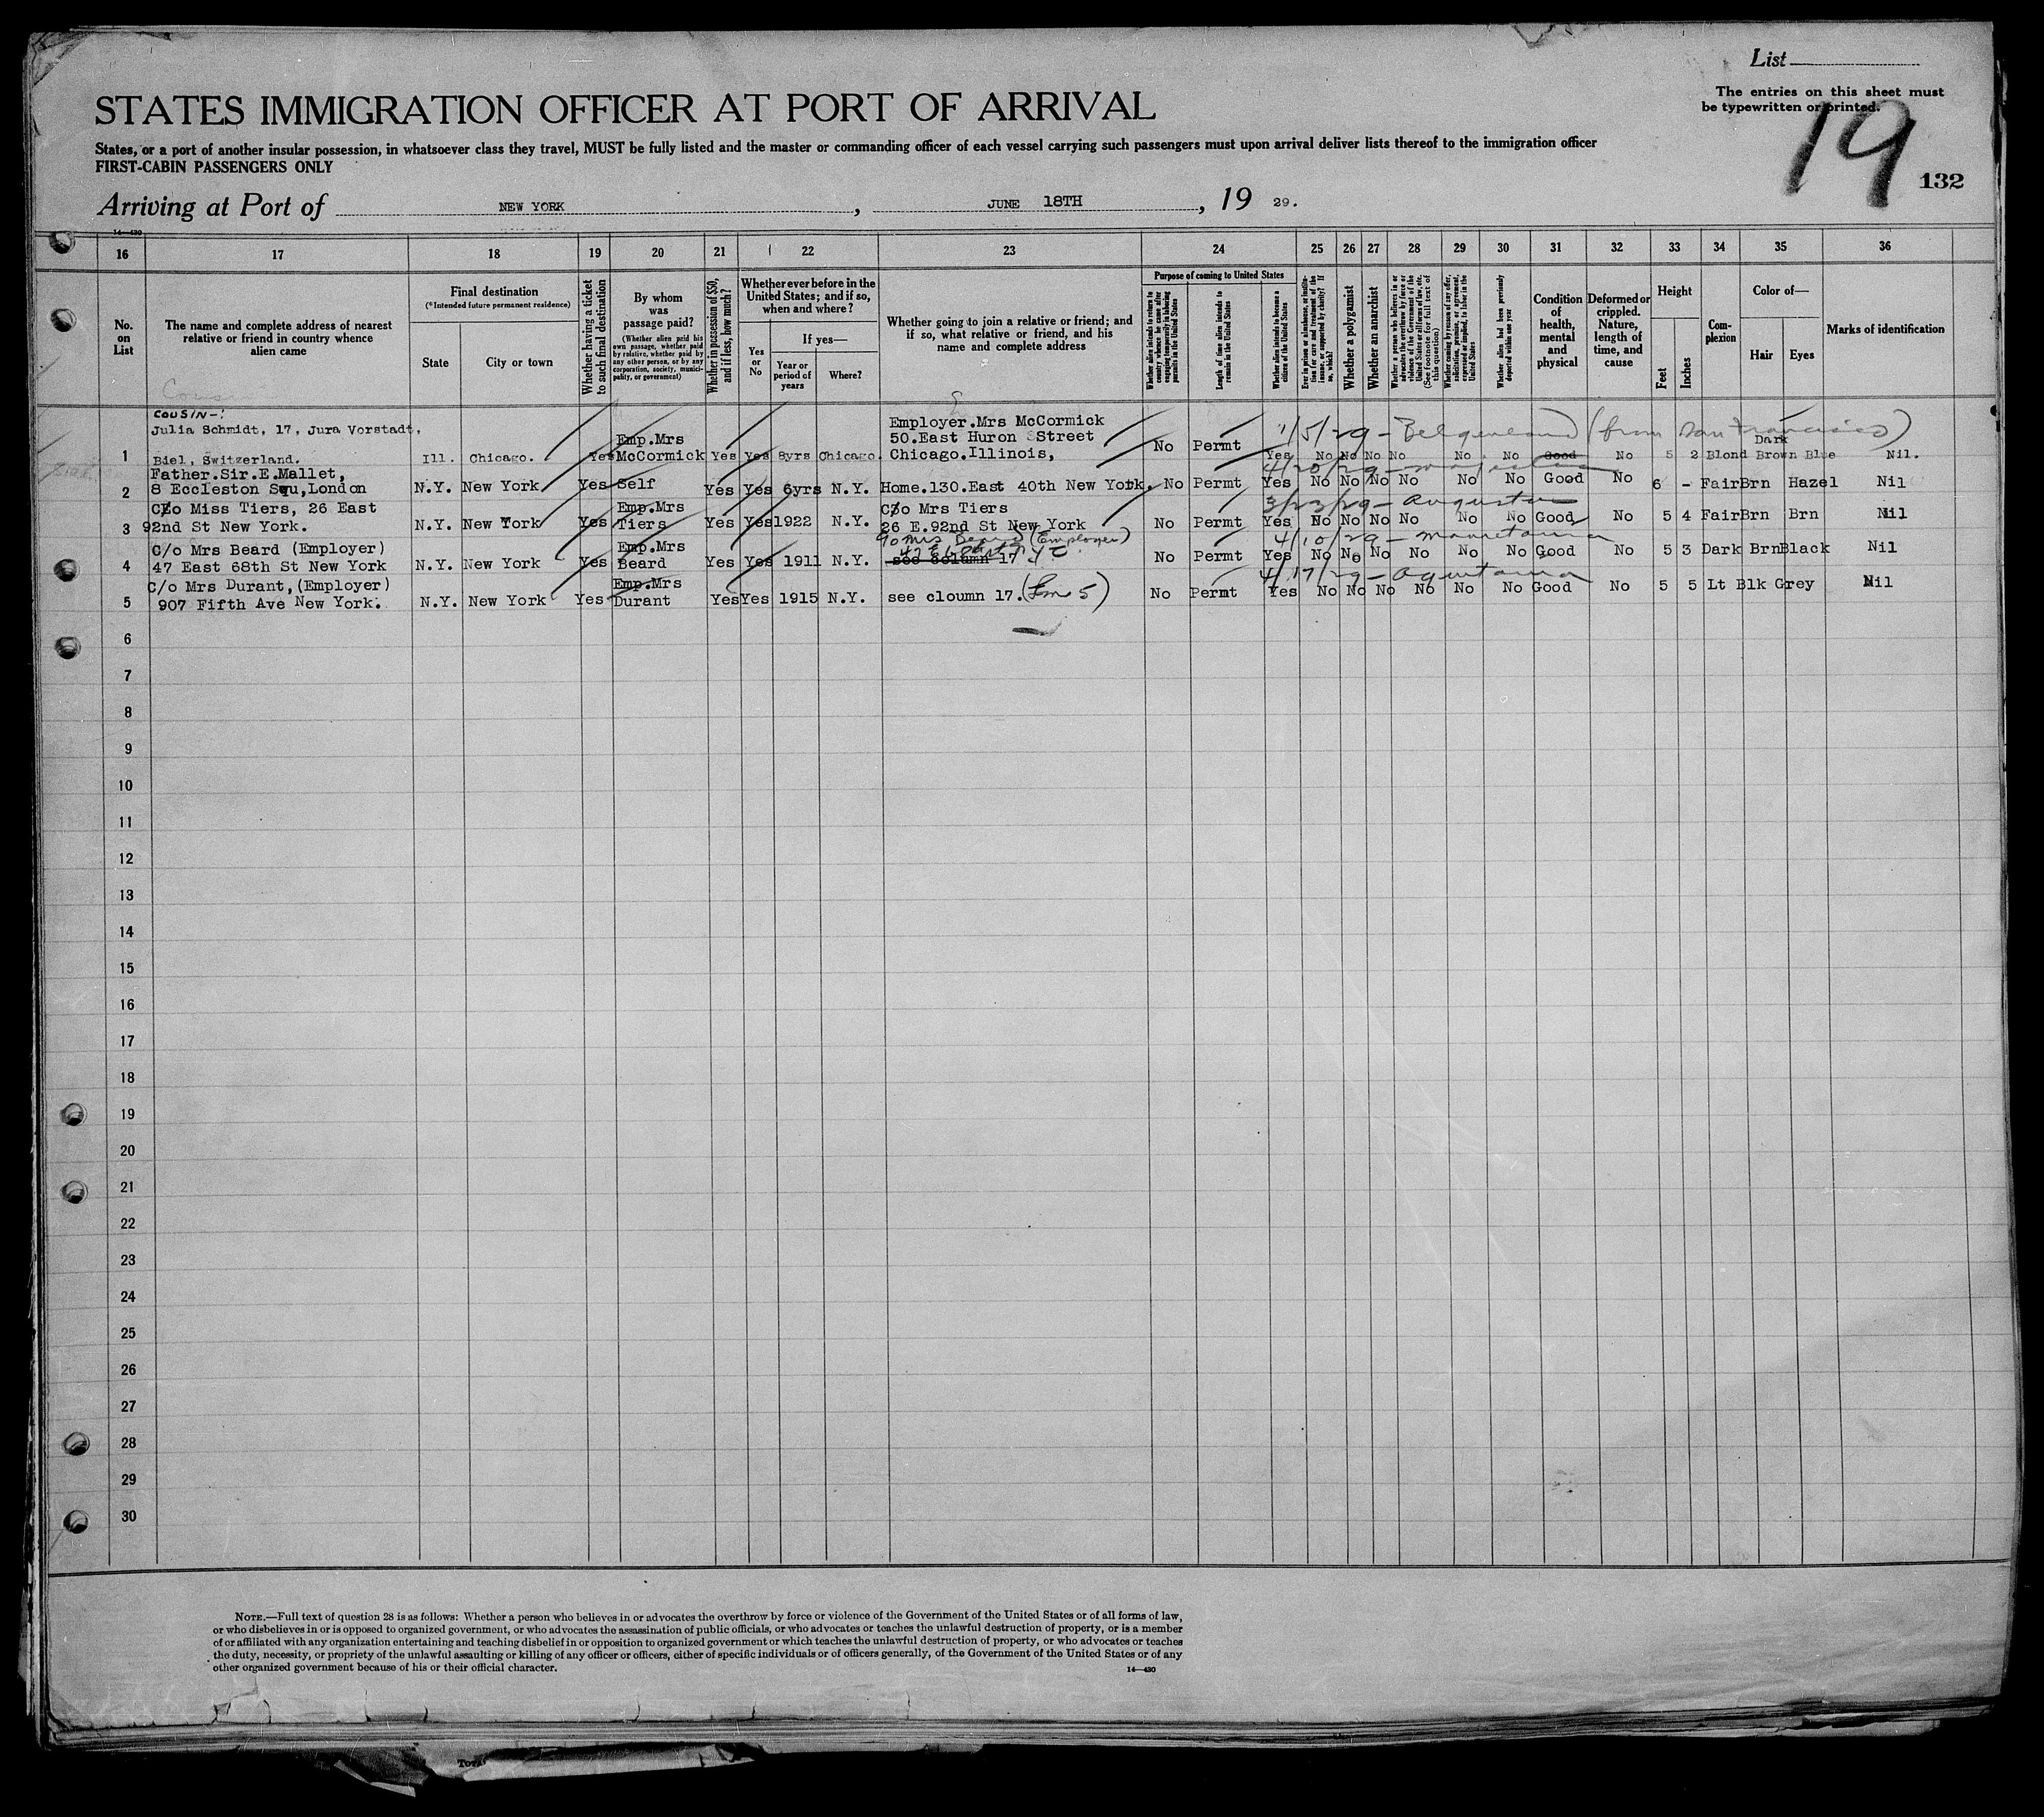 List
The entries on this sheet must
be typewritten or printed.
19
132
STATES IMMIGRATION OFFICER AT PORT OF ARRIVAL
States, or a port of another insular possession, in whatsoever class they travel, MUST be fully listed and the master or commanding officer of each vessel carrying such passengers must upon arrival deliver lists thereof to the immigration officer
FIRST-CABIN PASSENGERS ONLY
Arriving at Port of NEW YORK, JUNE 18TH, 19 29.
14—430
16 17 18 19 20 21 22 23 24 25 26 27 28 29 30 31 32 33 34 35 36
No.
on
List
The name and complete address of nearest
relative or friend in country whence
alien came
Final destination
(*Intended future permanent residence)
State
City or town
Whether having a ticket
to such final destination
By whom
was
passage paid?
(Whether alien paid his
own passage, whether paid
by relative, whether paid by
any other person, or by any
corporation, society, munici-
pality, or government)
Whether in possession of $50,
and if less, how much?
Whether ever before in the
United States; and if so,
when and where?
Yes
or
No
If yes—
Year or
period of
years
Where?
Whether going to join a relative or friend; and
if so, what relative or friend, and his
name and complete address
Purpose of coming to United States
Whether alien intends to return to
country whence he came after
engaging temporarily in laboring
pursuits in the United States
Length of time alien intends to
remain in the United States
Whether alien intends to become a
citizen of the United States
Ever in prison or almshouse, or institu-
tion for care and treatment of the
insane, or supported by charity? If
so, which?
Whether a polygamist
Whether an anarchist
Whether a person who believes in or
advocates the overthrow by force or
violence of the Government of the
United States or all forms of law, etc.
(See footnote for full text of
this question)
Whether coming by reason of any offer,
solicitation, promise, or agreement,
expressed or implied, to labor in the
United States
Whether alien had been previously
deported within one year
Condition
of
health,
mental
and
physical
Deformed or
crippled.
Nature,
length of
time, and
cause
Height
Feet
Inches
Com-
plexion
Color of—
Hair
Eyes
Marks of identification
Cousin
COUSIN-:
Julia Schmidt, 17, Jura Vorstadt,
Employer.Mrs McCormick
50.East Huron Street
1/5/29 - Belgenland (from San Francisco)
Emp.Mrs
Dark
1 Biel, Switzerland. Ill. Chicago. Yes McCormick Yes Yes 8yrs Chicago. Chicago.Illinois, No Permt Yes No No No No No No Good No 5 2 Blond Brown Blue Nil.
Father.Sir.E.Mallet,
4/20/29 - Majestic
2 8 Eccleston Squ,London N.Y. New York Yes Self Yes Yes 6yrs N.Y. Home.130.East 40th New York. No Permt Yes No No No No No No Good No 6 - Fair Brn Hazel Nil
C/o Miss Tiers, 26 East
Emp.Mrs
C/o Mrs Tiers
3/23/29 - Augustus
3 92nd St New York. N.Y. New York Yes Tiers Yes Yes 1922 N.Y. 26 E.92nd St New York No Permt Yes No No No No No No Good No 5 4 Fair Brn Brn Nil
C/o Mrs Beard (Employer)
Emp.Mrs
c/o Mrs Beard (Employer)
4/10/29 - Mauretania
4 47 East 68th St New York N.Y. New York Yes Beard Yes Yes 1911 N.Y. see column 17 No Permt Yes No No No No No No Good No 5 3 Dark Brn Black Nil
C/o Mrs Durant,(Employer)
Emp.Mrs
4/17/29 - Aquitania
5 907 Fifth Ave New York. N.Y. New York Yes Durant Yes Yes 1915 N.Y. see cloumn 17. No Permt Yes No No No No No No Good No 5 5 Lt Blk Grey Nil
6
7
8
9
10
11
12
13
14
15
16
17
18
19
20
21
22
23
24
25
26
27
28
29
30
NOTE.—Full text of question 28 is as follows: Whether a person who believes in or advocates the overthrow by force or violence of the Government of the United States or of all forms of law,
or who disbelieves in or is opposed to organized government, or who advocates the assassination of public officials, or who advocates or teaches the unlawful destruction of property, or is a member
of or affiliated with any organization entertaining and teaching disbelief in or opposition to organized government or which teaches the unlawful destruction of property, or who advocates or teaches
the duty, necessity, or propriety of the unlawful assaulting or killing of any officer or officers, either of specific individuals or of officers generally, of the Government of the United States or of any
other organized government because of his or their official character.
14—430